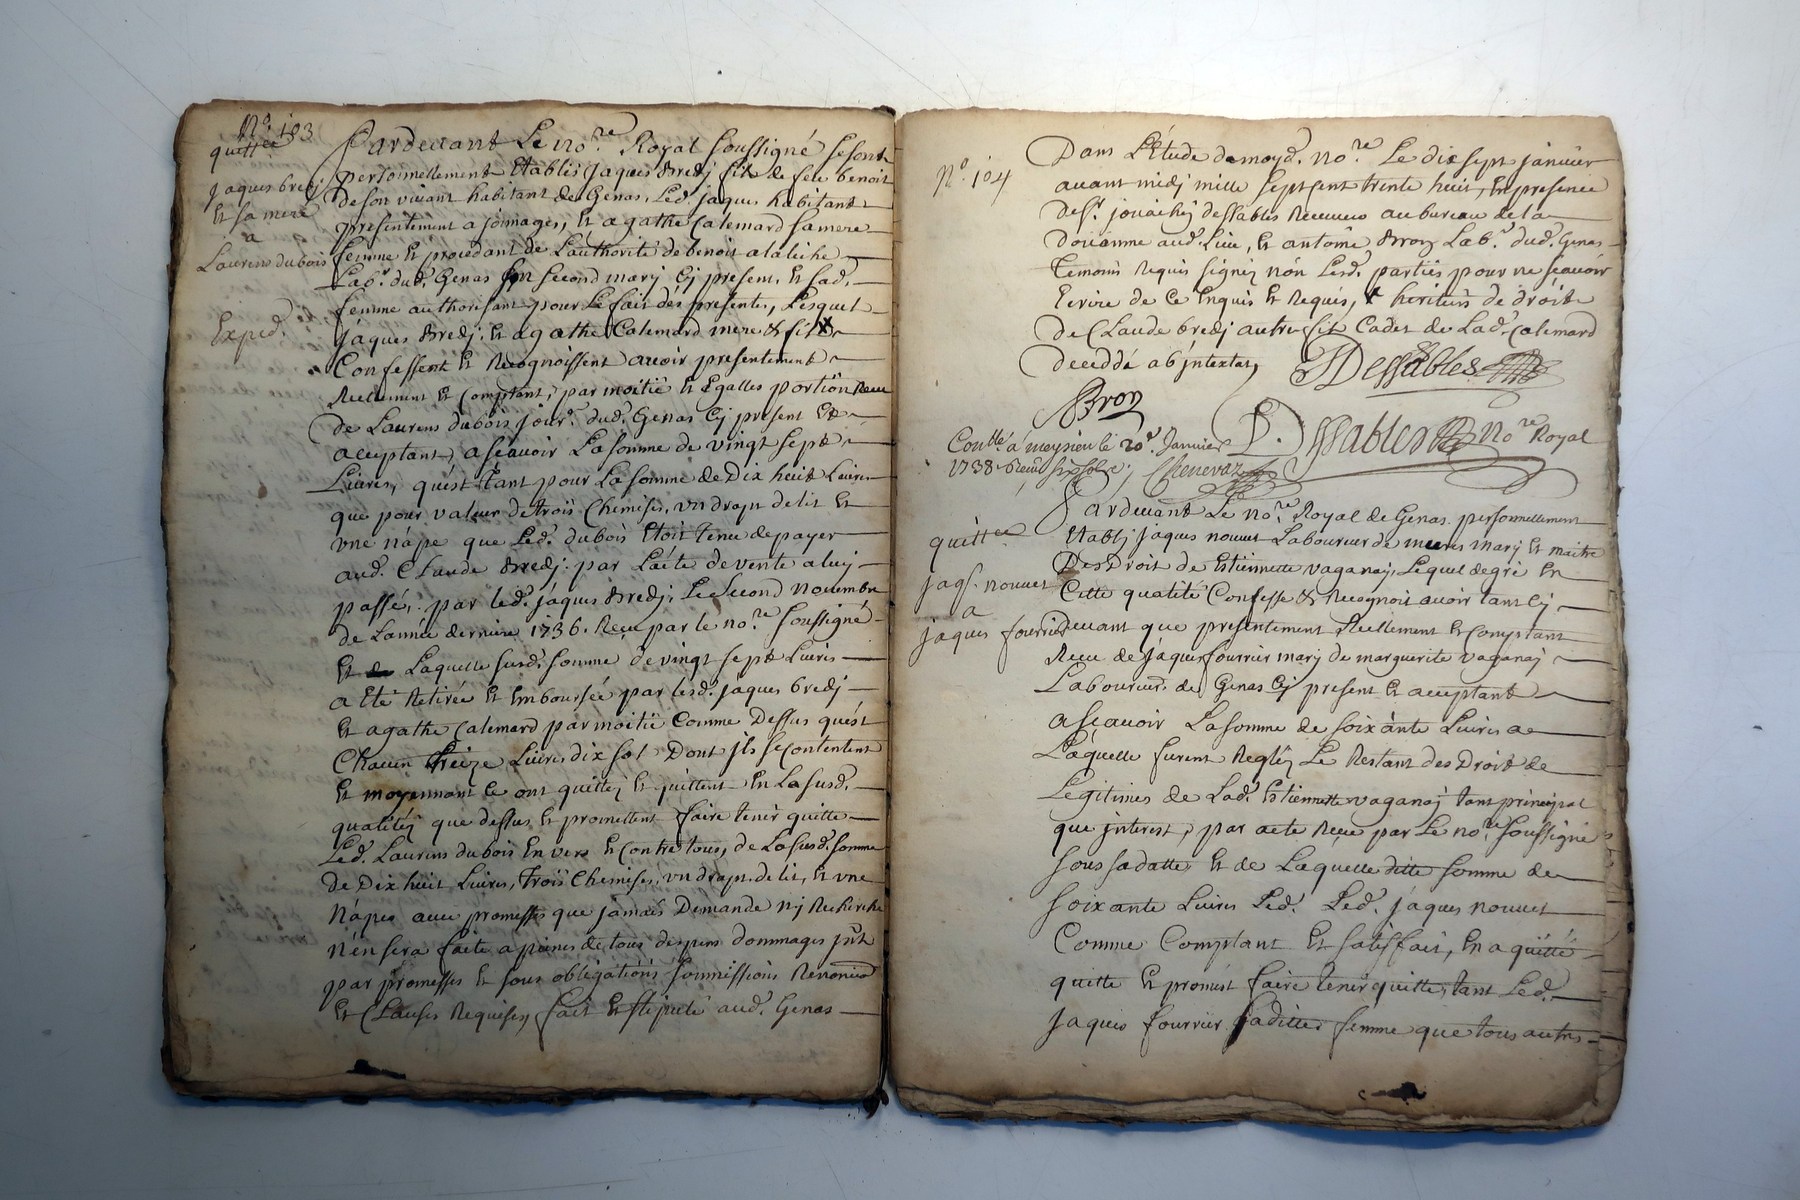 N.º 103
quittce
jaques bredj
Et sa mere
a
Laurens dubois
Exped.
Pardevant Le no.re Royal soussigné se sont
personnellement Etablis jaques Bredj fils de feu benoit
de son vivant habitant de Genas, Led. jaques habitant
presentement a joinages, Et agathe Calemard sa mere
femme Et procedant de L'authorité de benoit
Lab.r dud. Genas son second marj Cj present, Et sad.
femme authorisant pour Le fait des presente, Lesquel
jaques Bredj, Et agathe Calemard mere & fils
Confessent Et Recognoissent avoir presentement
Reellement Et Comptant, par moitié Et Egalles portion Receu
de Laurens dubois jour.r dud. Genas Cj present Et
acceptant, a scavoir La somme de vingt sept
Livres, qu'est tant pour La somme de Dix huit Livres
que pour valeur de trois Chemises, vn drapt de lit Et
vne nápe que Led. dubois Etoit tenu de payer
aud. Claude Bredj par L'acte de vente a luj
passé, par led. jaques Bredj, Le second novembre
de L'année derniere 1736. Receu par le no.re soussigné
Et Laquelle susd. somme de vingt sept Livres
a Eté Retirée Et Emboursée par lesd. jaques bredj
Et agathe Calemard par moitié Comme Dessus qu'est
Chacun treize Livres dix sol Dont jls se contentent
Et moyennant Ce ont quittéz Et quittent En La susd.
qualitéz que dessus Et promettent faire tenir quitte
Led. Laurens dubois Envers Et Contre tous, de La susd. somme
de Dix huit Livres, trois Chemises, vn drapt de lit, Et vne
Nápe avec promesses que jamais Demande nj Recherche
n'en sera faite a peines de tous despens dommages jnt
par promesses Et sous obligations soumissions Renonciaõ
Et Clauses Requises, fait Et stipulé aud. Genas
N.º 104
Dans L'Étude de moyd. no.re Le dix sept janvier
avant midj mille sept sent trente huit, En presence
de S.r jouachin dessables Receveur au bureau de la
doüanne aud. Lieu, Et antoine Bron Lab.r dud. Genas
temoins Requis signéz nón Lesd. parties pour ne scavoir
Ecrire de Ce Enquis Et Requis, x heritiers de dróit
de Claude bredj autre fils Cadet de Lad. Calemard
deceddé ab jntextat,
JDessables
Bron
P. Dessables no.re Royal
Conlle a meysieu le 20e. Janvier
1738 receu six sols. Chenevaz
quittce
jaqs. nouvet
a
jaques fourrier
Pardevant Le no.re Royal de Genas personnellement
Etablj jaques nouvet Laboureur de meires marj Et maitre
Des Droit de Estiennette vaganaj, Lequel de gré En
Cette qualité Confesse & Recognoit avoir tant Cj
devant que presentement Reellement Et Comptant
Receu de jaques fourrier marj de marguerite vaganaj
Laboureur de Genas Cj present Et acceptant
a scavoir La somme de soixante Livres a
Laquelle furent Regléz Le Restant des Droit de
Legitimes de Lad. Estiennette vaganaj tant principal
que jnterest, par acte Receu par Le no.re soussigné
sous sa datte, Et de Laquelle ditte somme de
soixante Livres Led. Led. jaques nouvet
Comme Comptant Et satisfait, En a quitté
quitte Et promest faire tenir quitte, tant Led.
jaques fourrier saditte femme que tous autres